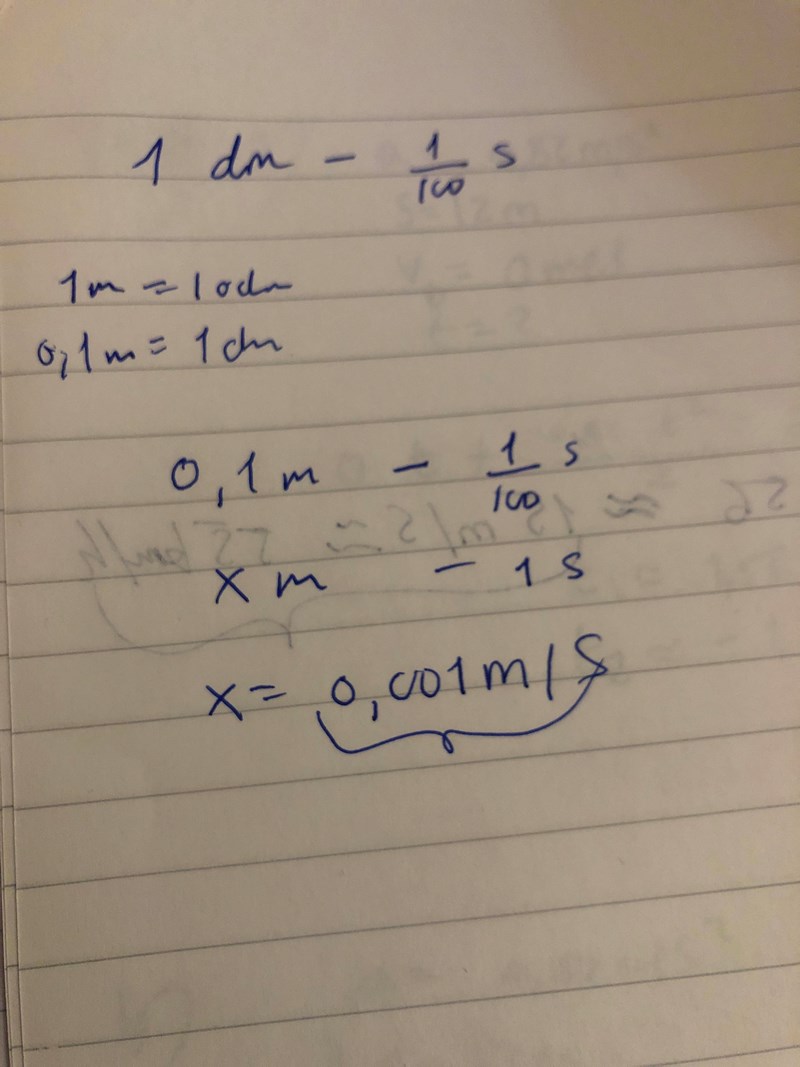 1 dm - 1/100 s
1m = 10dm
0,1m = 1dm
0,1m - 1/100 s
x m - 1s
x = 0,001m/s